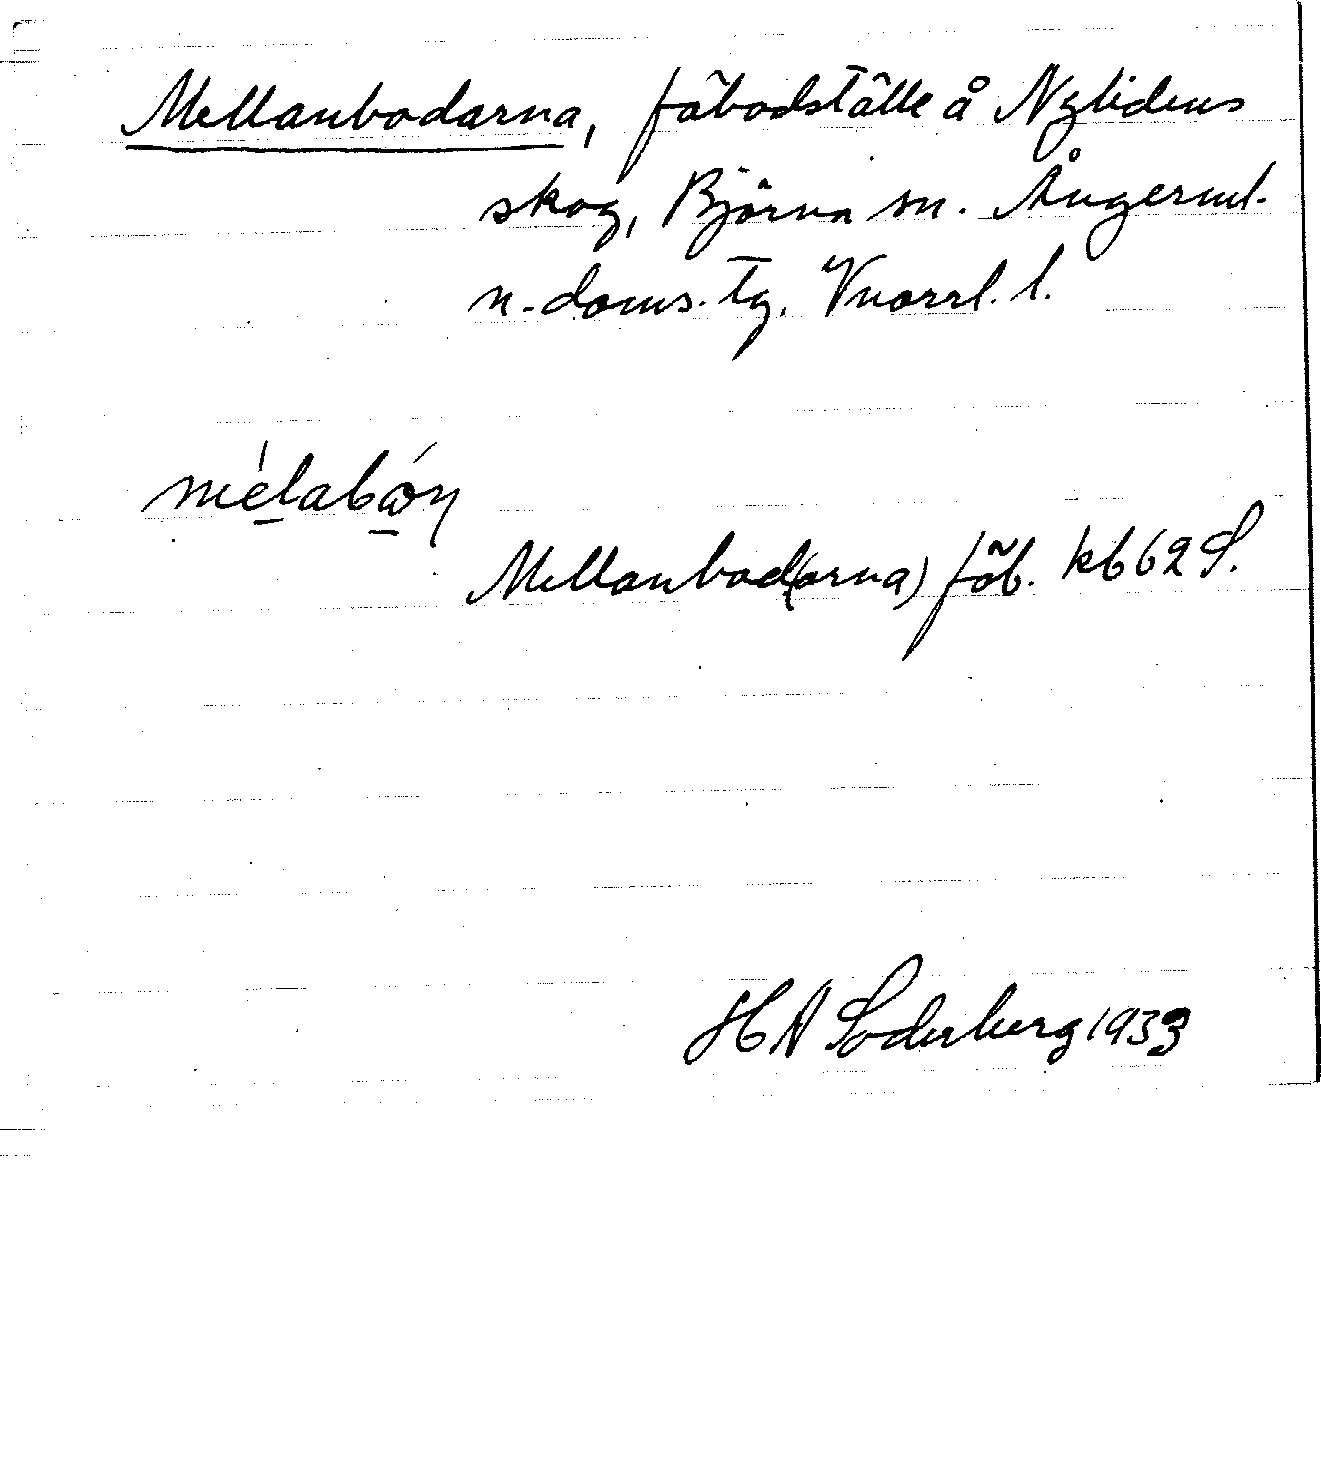 Mellanbodarna, fäbodställe å Nylidens
skog, Björna sn. Ångerml.
n. doms. tg. Vnorrl. l.
mélabón
Mellanbod(arna) fäb. kb 62 S.
H A Söderberg 1933